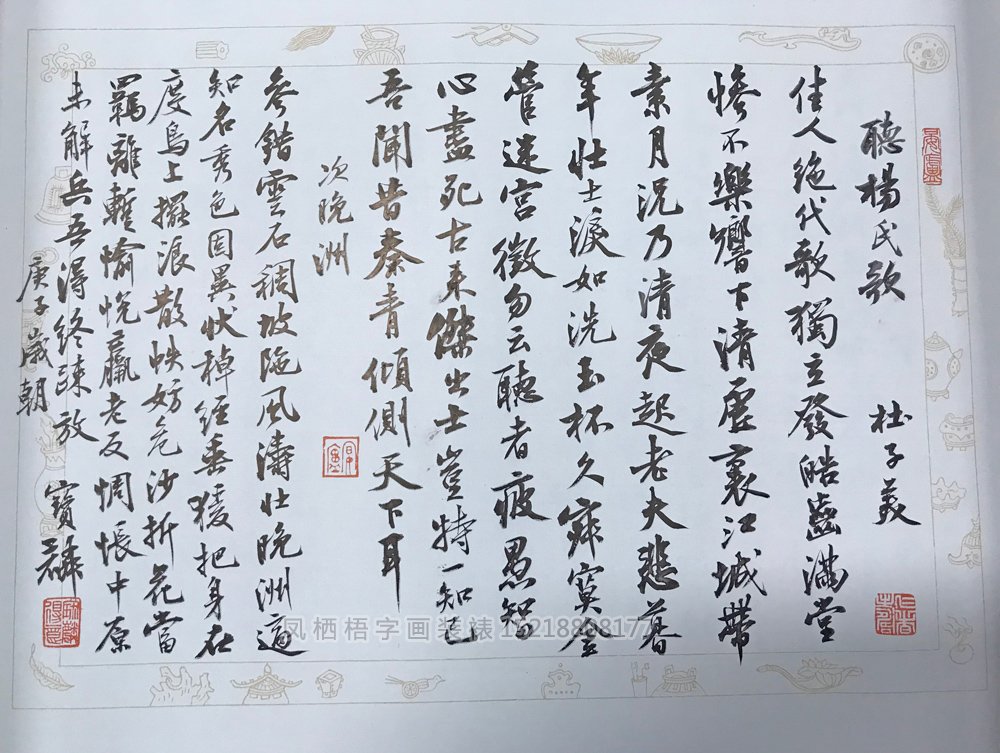 聽楊氏歌 杜子美
佳人絶代歌獨立發皓齒滿堂
慘不樂響下清虛裏江城帶
素月況乃清夜起老夫悲暮
年壯士淚如洗玉杯久寂寞金
管迷宮徵勿云聽者疲愚智
心盡死古來傑出士豈特一知己
吾聞昔秦青傾側天下耳
次晚洲
參錯雲石稠坡陁風濤壯晚洲適
知名秀色固異狀棹經垂猿把身在
度鳥上擺浪散帙妨危沙折花當
羈離暫愉悅羸老反惆悵中原
未解兵吾得終疎放 寶麟
庚子歲朝
凤栖梧字画装裱